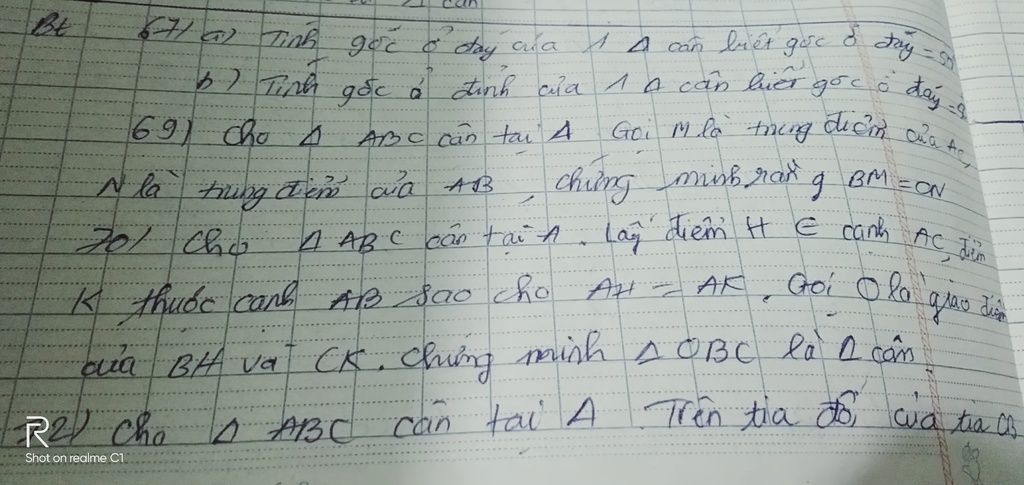 Bt 67) a) Tính góc ở đáy của 1 Δ cân biết góc ở đáy =
b) Tính góc ở đỉnh của 1 Δ cân biết góc ở đáy =
69) Cho Δ ABC cân tại A Gọi M là trung điểm của AC,
N là trung điểm của AB, chứng minh rằng BM = CN
70) Cho Δ ABC cân tại A. Lấy điểm H ∈ cạnh AC, điểm
K thuộc cạnh AB sao cho AH = AK. Gọi O là giao điểm
của BH và CK. Chứng minh Δ OBC là Δ cân
2) Cho Δ ABC cân tại A Trên tia đối của tia CB
R
Shot on realme C1